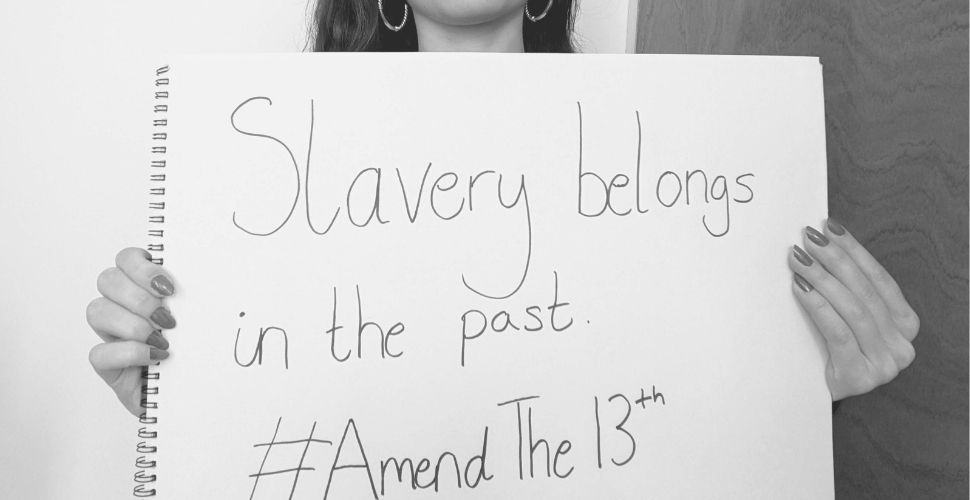 Slavery belongs
in the past.
#AmendThe13th